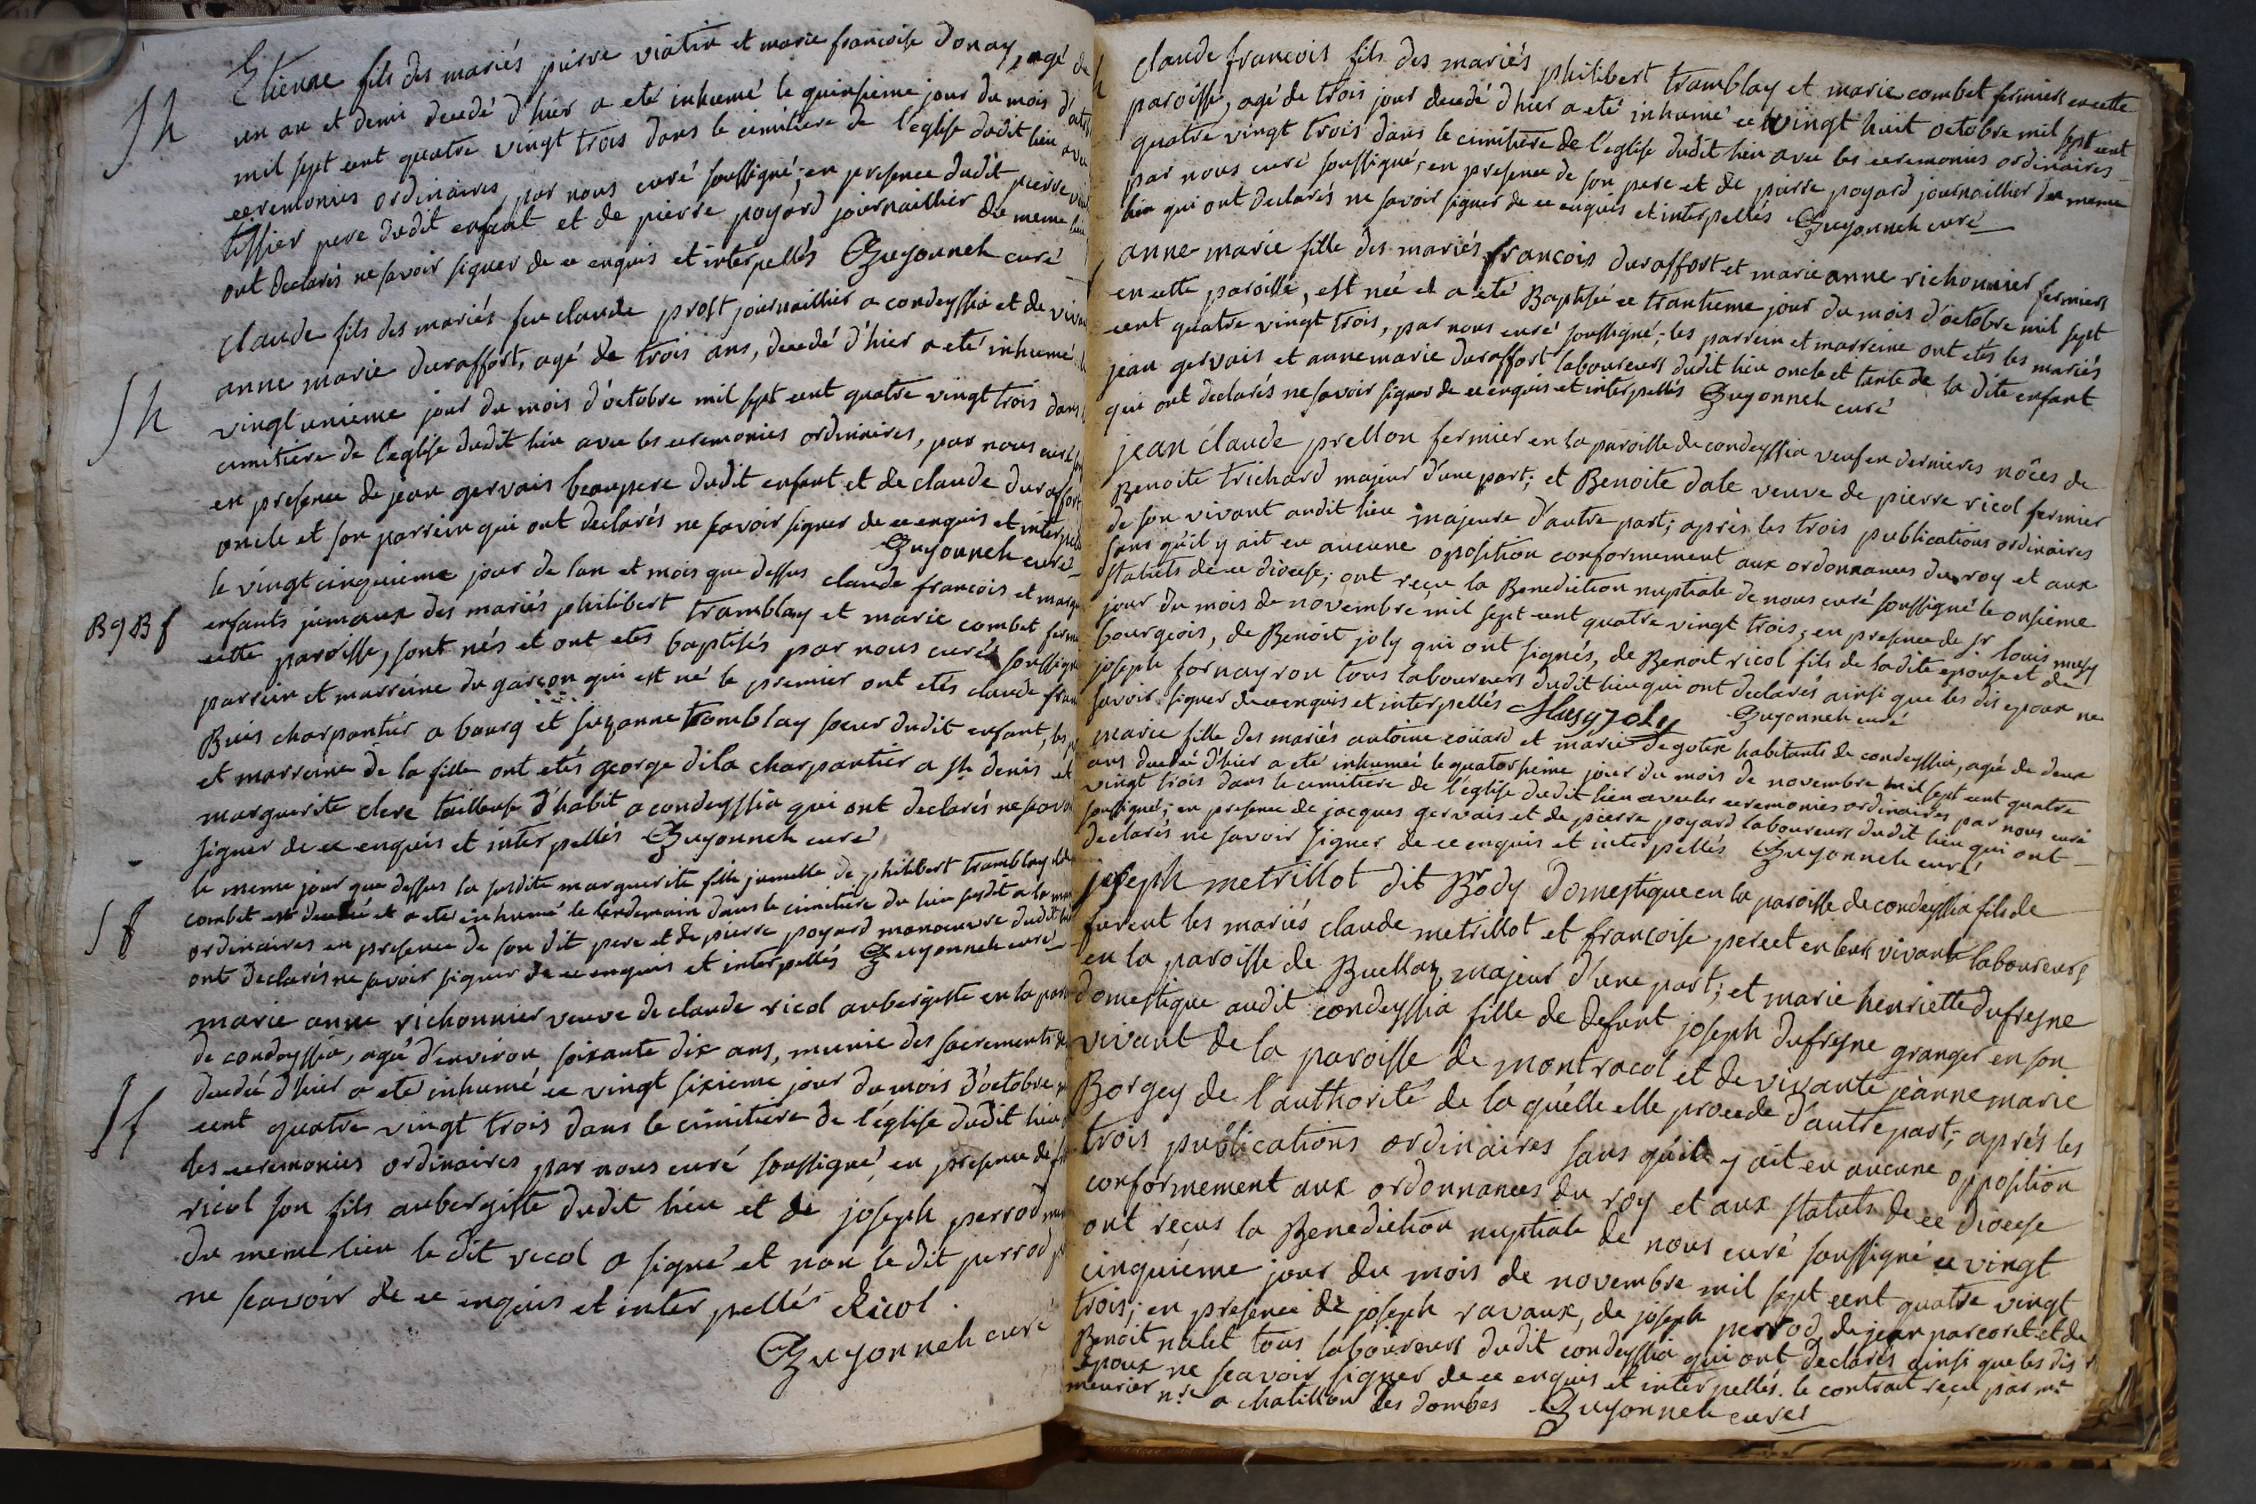 Etienne fils des mariés pierre viatin et marie francoise donay, agé de
Sh
un an et demi decedé d'hier a eté inhumé le quinsieme jour du mois d'
mil sept cent quatre vingt trois dans le cimitiere de l'eglise dudit lieu avec
ceremonies ordinaires par nous curé soussigné; en presence dudit pierre
tissier pere dudit enfant et de pierre poyard journaillier du meme lieu
ont declarés ne savoir signer de ce enquis et interpellés Guyonnet curé
claude fils des mariés feu claude prost journaillier a condeyssia et de
anne marie duraffort, agé de trois ans, decedé d'hier a eté inhumé
Sh
vingt unieme jour du mois d'octobre mil sept cent quatre vingt trois dans
cimitiere de l'eglise dudit lieu avec les ceremonies ordinaires, par nous curé
en presence de jean gervais beaupere dudit enfant et de claude duraffort
oncle et son parrein qui ont declarés ne savoir signer de ce enquis et
Guyonnet curé
le vingt cinquieme jour de l'an et mois que dessus claude francois et
Bg Bf
enfants jumaux des mariés philibert tramblay et marie combet
cette paroisse, sont nés et ont etés baptisés par nous curé
parrein et marreine du garçon qui est né le premier ont etés claude
Buis charpantier a bourg et suzanne tramblay soeur dudit enfant, les
et marreine de la fille ont etés george dila charpantier a st denis et
marguerite clerc tailleuse d'habit a condeyssia qui ont declarés ne
signer de ce enquis et interpellés Guyonnet curé
le meme jour que dessus la susdite marguerite fille jumelle de philibert tramblay
combet est decedé et a eté inhumé le lendemain dans le cimitiere du lieu susdit
Sf
ordinaires en presence de son dit pere et de pierre poyard manoeuvre dudit
ont declarés ne savoir signer de ce enquis et interpellés Guyonnet curé
marie anne richonnier veuve de claude ricol aubergiste en la
de condeyssia, agé d'environ soixante dix ans, munie des sacrements
decedé d'hier a eté inhumé ce vingt sixieme jour du mois d'octobre
Sf
cent quatre vingt trois dans le cimitiere de l'église dudit lieu
les ceremonies ordinaires par nous curé soussigné, en presence de
ricol son fils aubergiste dudit lieu et de joseph perrod
du meme lieu le dit ricol a signé et non le dit perrod
ne scavoir de ce enquis et interpellés Ricol.
Guyonnet curé
claude francois fils des mariés philibert tramblay et marie combet fermiers en cette
paroisse, agé de trois jour decedé d'hier a eté inhumé ce vingt huit octobre mil sept cent
quatre vingt trois dans le cimitiere de l'eglise dudit lieu avec les ceremonies ordinaires
par nous curé soussigné; en presence de son pere et de pierre poyard journaillier du meme
lieu qui ont declarés ne savoir signer de ce enquis et interpellés Guyonnet curé
anne marie fille des mariés francois duraffort et marie anne richonnier fermiers
en cette paroisse, est née et a eté Baptisée ce trantieme jour du mois d'octobre mil sept
cent quatre vingt trois, par nous curé soussigné; les parrein et marreine ont etés les mariés
jean gervais et anne marie duraffort laboureurs dudit lieu oncle et tante de la dite enfant
qui ont declarés ne savoir signer de ce enquis et interpellés Guyonnet curé
jean claude prellon fermier en la paroisse de condeyssia veuf en dernieres nôces de
Benoite trichard majeur d'une part; et Benoite dale veuve de pierre ricol fermier
de son vivant audit lieu majeure d'autre part; après les trois publications ordinaires
sans qu'il y ait eu aucune oposition conformement aux ordonnances du roy et aux
statuts de ce diocese; ont reçu la Benediction nuptiale de nous curé soussigné le onsieme
jour du mois de novembre mil sept cent quatre vingt trois; en presence de sr louis musy
bourgeois, de Benoit joly qui ont signés, de Benoit ricol fils de la dite epouse et de
joseph fornayron tous laboureurs dudit lieu qui ont declarés ainsi que les dis epoux ne
savoir signer de ce enquis et interpellés Musy Joly Guyonnet curé
marie fille des mariés antoine coüard et marie degotex habitants de condeyssia, agée de deux
ans decedé d'hier a eté inhumée le quatorsieme jour du mois de novembre mil sept cent quatre
vingt trois dans le cimitiere de l'église dudit lieu avec les ceremonies ordinaires par nous curé
soussigné; en presence de jacques gervais et de pierre poyard laboureurs dudit lieu qui ont
declarés ne savoir signer de ce enquis et interpellés Guyonnet curé
joseph metrillot dit Brody domestique en la paroisse de condeyssia fils de
furent les mariés claude metrillot et françoise percet en leur vivant laboureurs
en la paroisse de Buellaz, majeur d'une part; et marie henriette dufresne
domestique audit condeyssia fille de defunt joseph dufresne granger en son
vivant de la paroisse de montracol et de vivante jeanne marie
Borgey de l'authorité de laquélle elle procede d'autre part; aprés les
trois publications ordinaires sans qu'il y ait eu aucune opposition
conformement aux ordonnances du roy et aux statuts de ce diocese
ont reçus la Benediction nuptiale de nous curé soussigné ce vingt
cinquiéme jour du mois de novembre mil sept cent quatre vingt
trois; en presence de joseph ravaux, de joseph perrod, de jean parcoret et de
Benoit nalet tous laboureurs dudit condeyssia qui ont declarés ainsi que les dis
epoux ne scavoir signer de ce enquis et interpellés. le contrat reçu par mt
meurier nre a chatillon les dombes Guyonnet curé